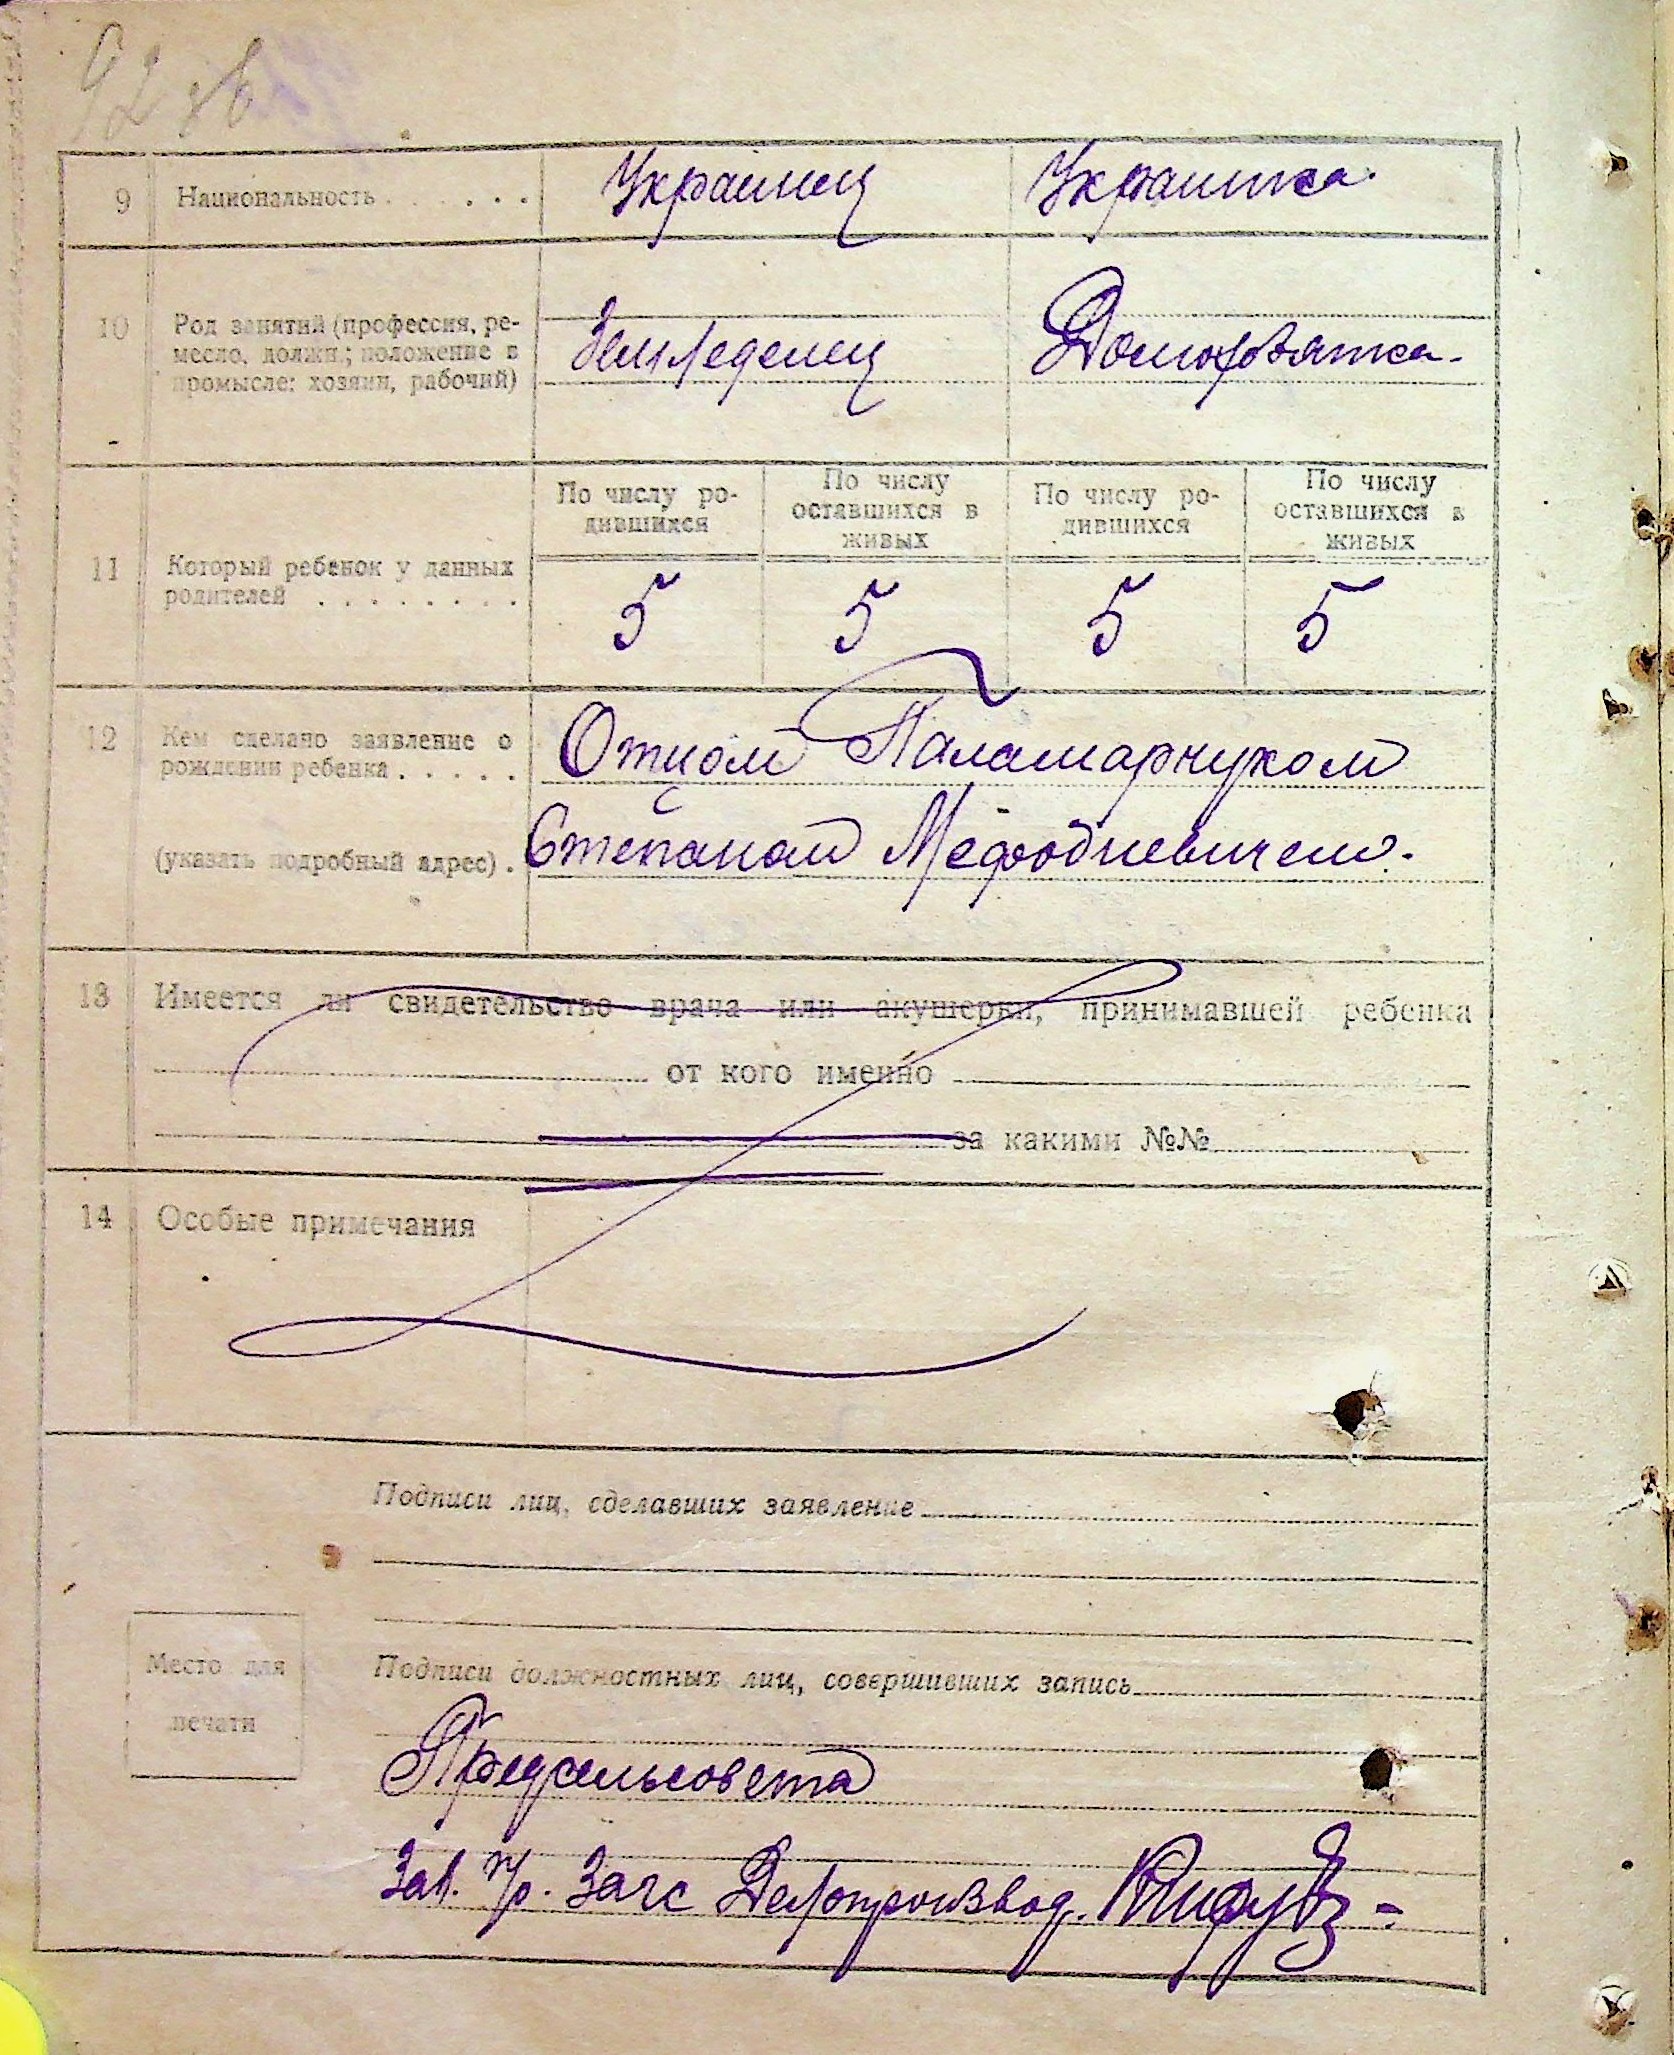 92 об
9 Национальность . . . . . . Украинец Украинка.
10 Род занятий (профессия, ре-
месло, должн.; положение в
промысле: хозяин, рабочий)
Земледелец Домохозяйка.
11 Который ребенок у данных
родителей . . . . . . . .
По числу ро-
дившихся
По числу
оставшихся в
живых
По числу ро-
дившихся
По числу
оставшихся в
живых
5 5 5 5
12 Кем сделано заявление о
рождении ребенка . . . . .
(указать подробный адрес) .
Отцом Паламарчуком
Степаном Мефодиевичем.
13 Имеется ли свидетельство врача или акушерки, принимавшей ребенка
от кого именно
за какими №№
14 Особые примечания
Подписи лиц, сделавших заявление
Место для
печати
Подписи должностных лиц, совершивших запись
Предсельсовета
Зав. Загс Делопроизвод.